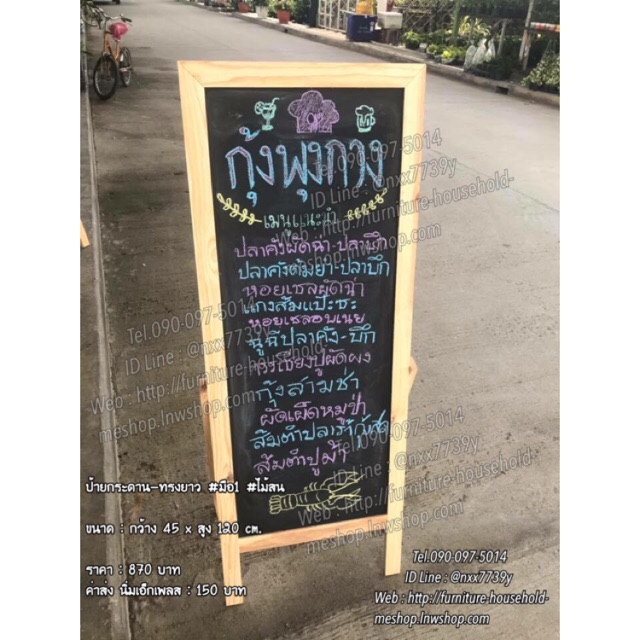 กุ้งพุงกาง
เมนูแนะนำ
ปลาคังผัดฉ่า-ปลาบึก
ปลาคังต้มยำ-ปลาบึก
หอยเชลผัดฉ่า
แกงส้มแป๊ะซะ
หอยเชลอบเนย
ฉู่ฉี่ปลาคัง-บึก
กรรเชียงปูผัดผง
กุ้งสามช่า
ผัดเผ็ดหมูป่า
ส้มตำปลาร้ากุ้งสด
ส้มตำปูม้า
ป้ายกระดาน-ทรงยาว #มือ1 #ไม้สน
ขนาด : กว้าง 45 x สูง 120 cm.
ราคา : 870 บาท
ค่าส่ง นิ่มเอ็กเพลส : 150 บาท
Tel.090-097-5014
ID Line : @nxx7739y
Web : http://furniture-household-
meshop.lnwshop.com
Tel.090-097-5014
ID Line : @nxx7739y
Web : http://furniture-household-
meshop.lnwshop.com
Tel.090-097-5014
ID Line : @nxx7739y
Web : http://furniture-household-
meshop.lnwshop.com
Tel.090-097-5014
ID Line : @nxx7739y
Web : http://furniture-household-
meshop.lnwshop.com